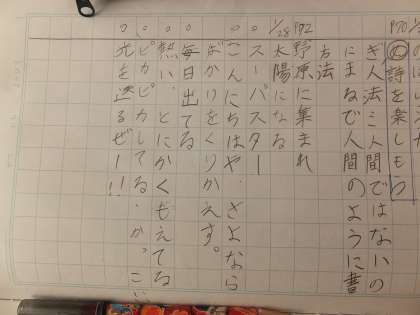 P70
詩を楽しもう
ぎ人法 = 人間ではないの
にまるで人間のように書
方法
P72
野原に集まれ
1/28
太陽になる
スーパースター
こんにちはや、さよなら
ばかりをくりかえす。
毎日出てる
熱い、とにかくもえてる
ピカピカしてる・かっこ
光を送るぜー!!